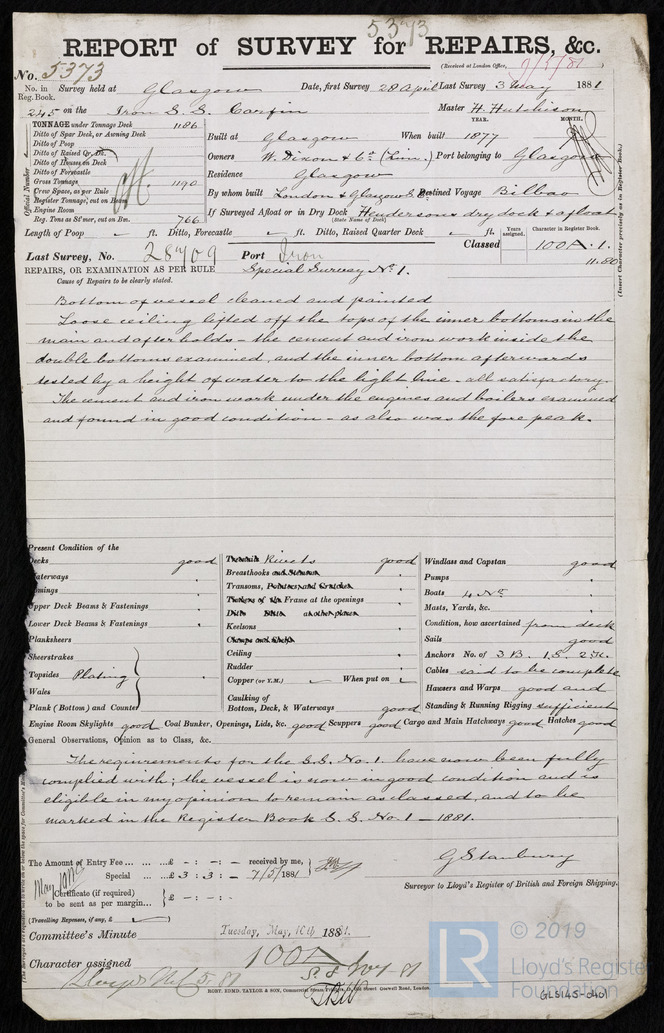 5373
REPORT of SURVEY for REPAIRS, &c.
(Received at London Office, 9/5/81)
No. 5373
No. in Reg. Book. Survey held at Glasgow Date, first Survey 28 April Last Survey 3 May 1881
245 on the Iron S. S. Carfin Master H. Hutchison
TONNAGE under Tonnage Deck 1186
Ditto of Spar Deck, or Awning Deck
Ditto of Poop
Ditto of Raised Qr. Dk.
Ditto of Houses on Deck
Ditto of Forecastle
Gross Tonnage 1190
Crew Space, as per Rule
Register Tonnage, cut on Beam
Engine Room
Reg. Tons as St'mer, cut on Bm. 766
Official Number
YEAR. MONTH.
Built at Glasgow When built 1877
Owners W. Dixon & Co (Lim.) Port belonging to Glasgow
Residence Glasgow
By whom built London & Glasgow S. Co Destined Voyage Bilbao
If Surveyed Afloat or in Dry Dock Hendersons dry dock & afloat
(State Name of Dock)
Length of Poop ft. Ditto, Forecastle ft. Ditto, Raised Quarter Deck ft.
Years assigned. Character in Register Book.
Classed 100A.1.
11.80
(Insert Character precisely as in Register Book.)
Last Survey, No. 28709 Port Iron
REPAIRS, OR EXAMINATION AS PER RULE Special Survey No. 1.
Cause of Repairs to be clearly stated.
Bottom of vessel cleaned and painted
Loose ceiling lifted off the tops of the inner bottoms in the
main and after holds - the cement and iron work inside the
double bottoms examined, and the inner bottom afterwards
tested by a height of water to the light line - all satisfactory.
The cement and iron work under the engines and boilers examined
and found in good condition - as also was the fore peak.
Present Condition of the
Decks good
Waterways
Upper Deck Beams & Fastenings
Lower Deck Beams & Fastenings
Planksheers
Sheerstrakes
Topsides Plating
Wales
Plank (Bottom) and Counter
Treenails Rivets good
Breasthooks and Stemson
Transoms, Pointers and Crutches
Timbers of the Frame at the openings
Ditto Ditto at other places
Keelsons
Clamps and Shelfs
Ceiling
Rudder
Copper (or Y.M.) When put on
Caulking of
Bottom, Deck, & Waterways good
Windlass and Capstan good
Pumps
Boats 4 No.
Masts, Yards, &c.
Condition, how ascertained from deck
Sails good
Anchors No. of 3 B. 1 S. 2 K.
Cables said to be complete
Hawsers and Warps good and
Standing & Running Rigging sufficient
Engine Room Skylights good Coal Bunker, Openings, Lids, &c. good Scuppers good Cargo and Main Hatchways good Hatches good
General Observations, Opinion as to Class, &c.
The requirements for the S.S. No. 1. have now been fully
complied with; the vessel is now in good condition and is
eligible in my opinion to remain as classed, and to be
marked in the Register Book S. S. No. 1 - 1881.
The Amount of Entry Fee ... £ - : - : - received by me,
Special ... £ 3 : 3 : - 7/5/1881
Certificate (if required) to be sent as per margin... £ - : - : -
(Travelling Expenses, if any, £
G Stanbury
Surveyor to Lloyd's Register of British and Foreign Shipping.
Committee's Minute Tuesday, May, 10th 1881.
Character assigned 100A
ROBT. EDMD. TAYLOR & SON, Commercial Steam Printers, Goswell Road, London.
© 2019
LR
Lloyd's Register
Foundation
GLS145-0401